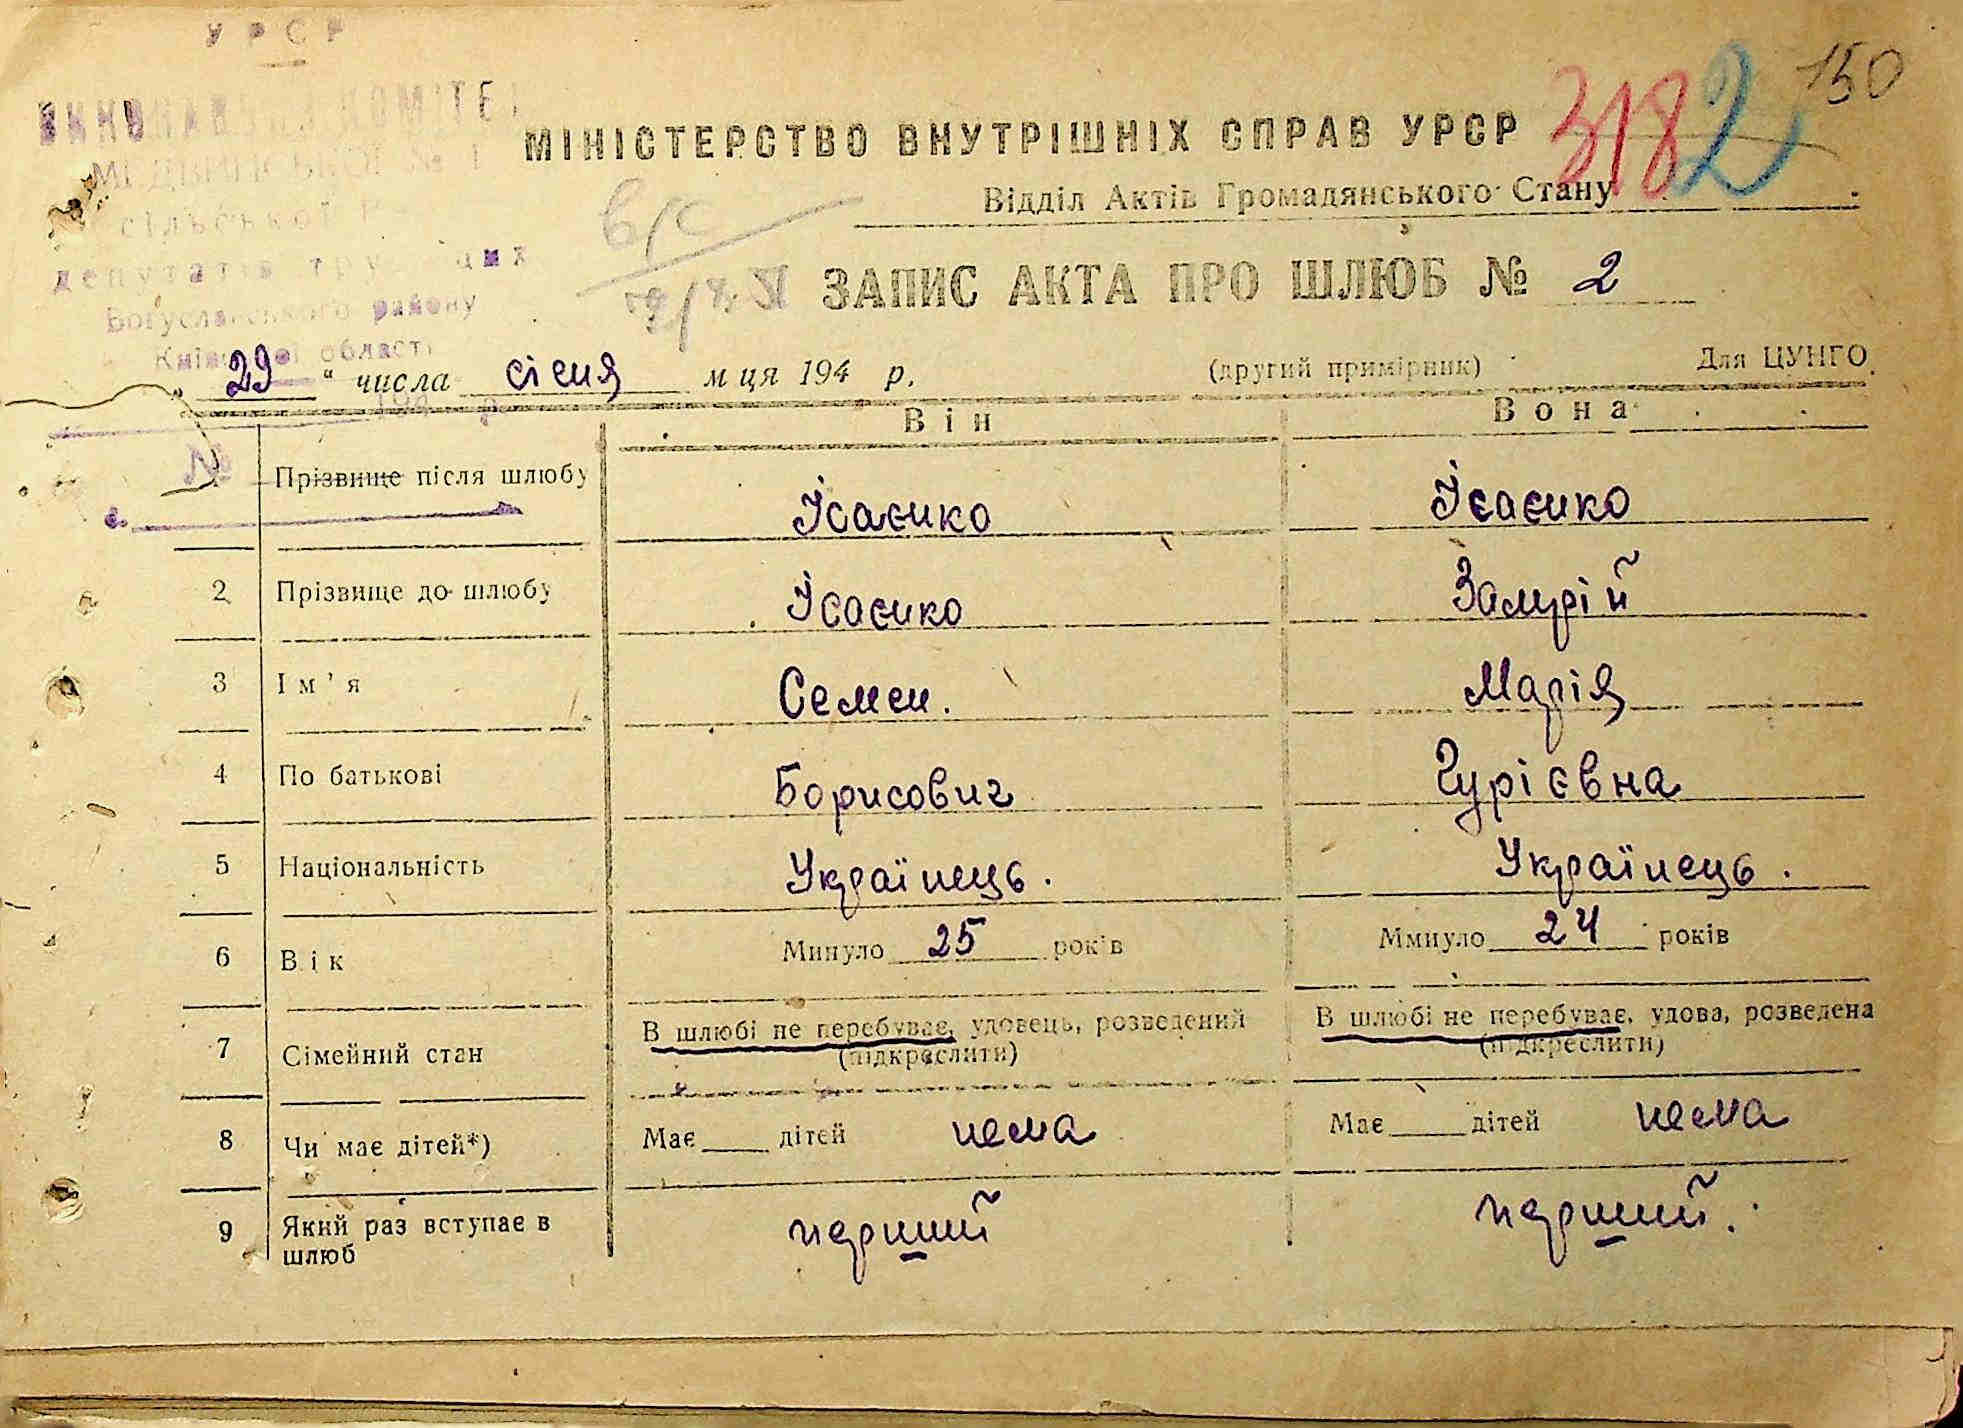 УРСР
ВИКОНАВЧИЙ КОМІТЕТ
МЕДВИНСЬКОЇ № 1
сільської Ради
депутатів трудящих
Богуславського району
Київської області
194 р.
№
3182
150
МІНІСТЕРСТВО ВНУТРІШНІХ СПРАВ УРСР
Відділ Актів Громадянського Стану
в/с
ЗАПИС АКТА ПРО ШЛЮБ № 2
„ 29 “ числа січня м-ця 194 р.
(другий примірник)
Для ЦУНГО
Він Вона
Прізвище після шлюбу Ісаєнко Ісаєнко
2 Прізвище до шлюбу Ісаєнко Замрій
3 Ім'я Семен. Марія
4 По батькові Борисович Гурієвна
5 Національність Українець. Українець.
6 Вік Минуло 25 років Ммнуло 24 років
7 Сімейний стан В шлюбі не перебуває, удовець, розведений В шлюбі не перебуває, удова, розведена
(підкреслити) (підкреслити)
8 Чи має дітей*) Має дітей нема Має дітей нема
9 Який раз вступає в перший перший.
шлюб